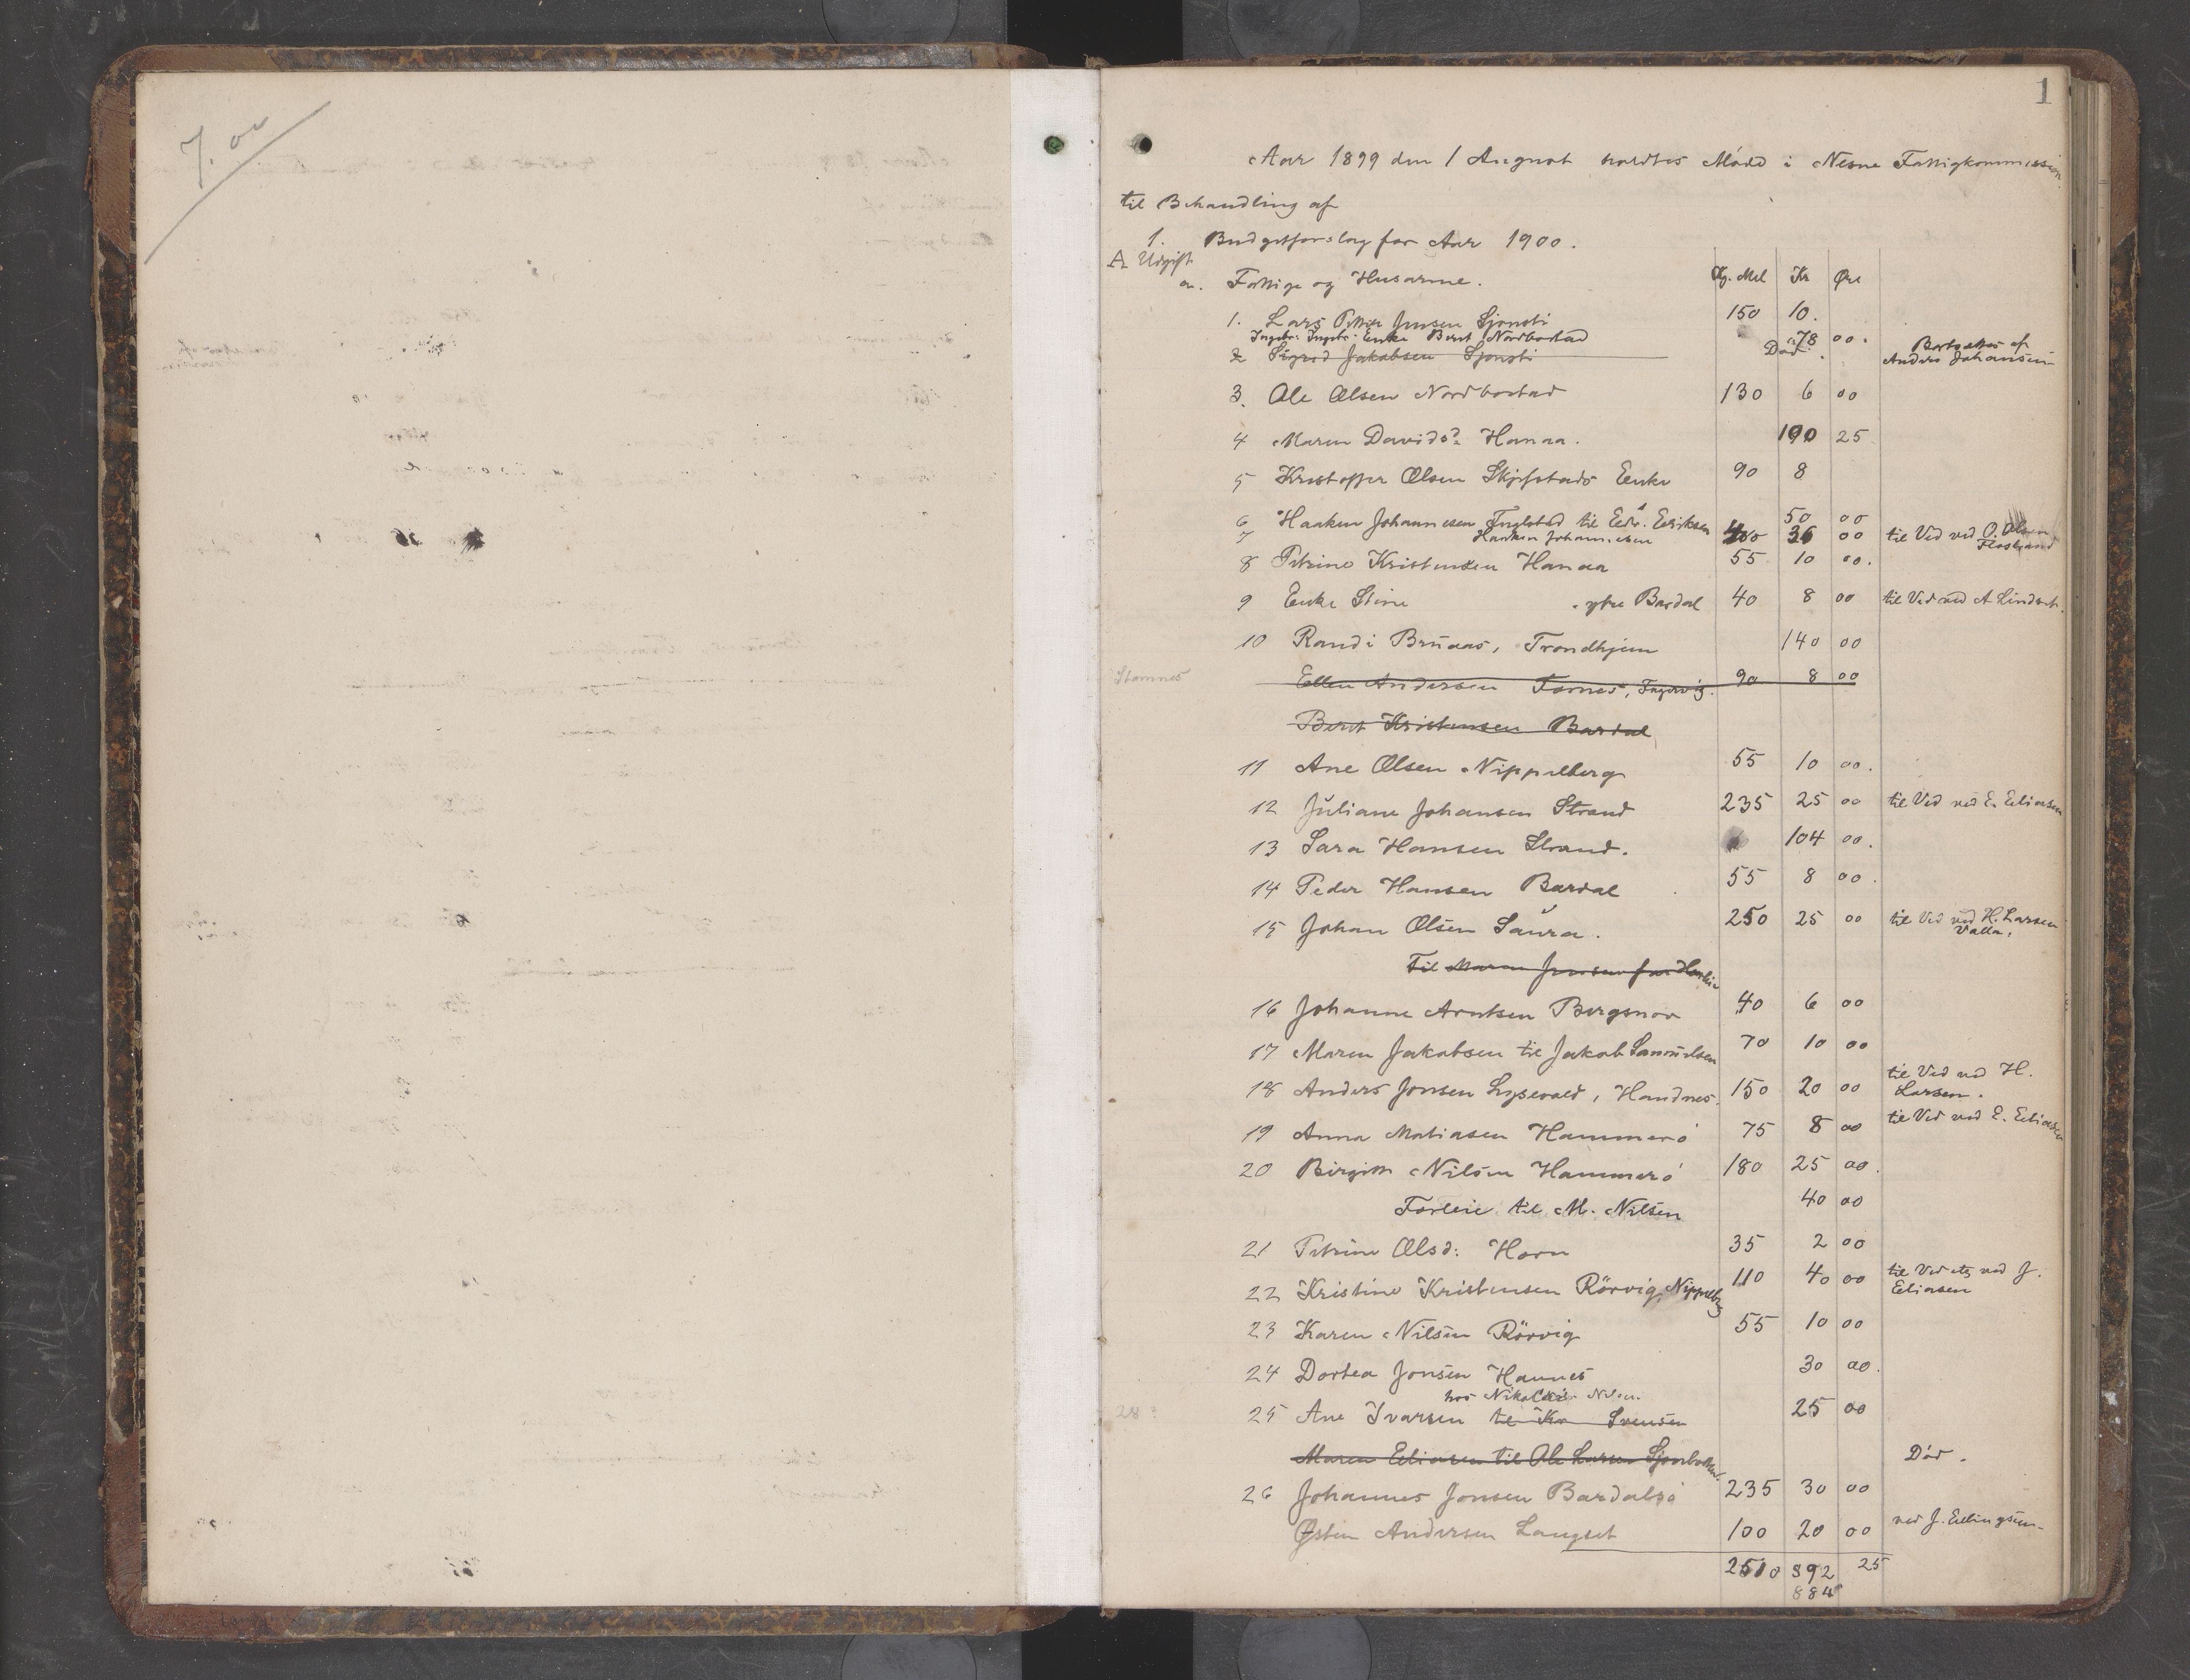 7. 00
1
Aar 1899 den 1 August holdtes Möde i Nesne Fattigkommission
til Behandling af
1. Budgetforslag for Aar 1900.
A Udgift
a. Fattige og Husarme. Kg. Mel Kr Øre
1. Lars Petter Jensen Sjonsti 150 10.
Ingebr: Ingebr: Enke Berit Nordbostad 78 00.
2 Sigrid Jakobsen Sjonsti Död. Bortsættes af Anders Johansen
3. Ole Olsen Nordbostad 130 6 00
4 Maren Davidsd. Hanaa. 190 25
5 Kristoffer Olsen Skjefstads Enke 90 8
6 Haaken Johannesen til Edv. Eriksen 50 00
7 Haaken Johannesen 36 00 til Ved ved O. Olsen Flostrand
8 Petrine Kristensen Hanaa 55 10 00.
9 Enke Stine ytre Bardal 40 8 00 til Ved ved A Lindset.
10 Randi Bruaas, Trondhjem 140 00
Stamnes Ellen Andersen Fornes, Fagervig. 90 8 00
Berit Kristensen Bardal
11 Ane Olsen Nippelberg 55 10 00.
12 Juliane Johansen Strand 235 25 00 til Ved ved E. Eliasen
13 Sara Hansen Strand. 104 00.
14 Peder Hansen Bardal 55 8 00.
15 Johan Olsen Saura. 250 25 00 til Ved ved H. Larsen Valla.
Til Maren Jensen for Husleie
16 Johanne Arntsen Bergsnov 40 6 00
17 Maren Jakobsen til Jakob Samuelsen 70 10 00
18 Anders Jonsen Lysevold, Handnes. 150 20 00 til Ved ved H. Larsen.
19 Anna Matiasen Hammerö 75 8 00 til Ved ved E. Eliasen
20 Birgitte Nilsen Hammerö 180 25 00.
Forleie til M. Nilsen 40 00
21 Petrine Olsd: Horn 35 2 00
22 Kristine Kristensen Rörvig, Nippelberg 110 40 00 til Ved etc ved J. Eliasen
23 Karen Nilsen Rörvig 55 10 00
24 Dortea Jonsen Hannes 30 00.
hos Nikolai Nilsen
28 25 Ane Ivarsen til Kr Svensen 25 00
Maren Eliasen til Ole Larsen Sjonbotten. Död.
26 Johannes Jonsen Bardalsö 235 30 00
Østen Andersen Langset 100 20 00 ved J. Ellingsen
2510 892 25
884